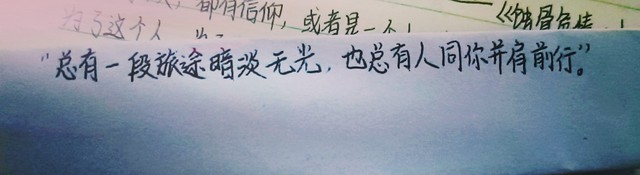 都有信仰，或者是一个
为了这个人
《蚀骨危情
“总有一段旅途暗淡无光，也总有人同你并肩前行。”